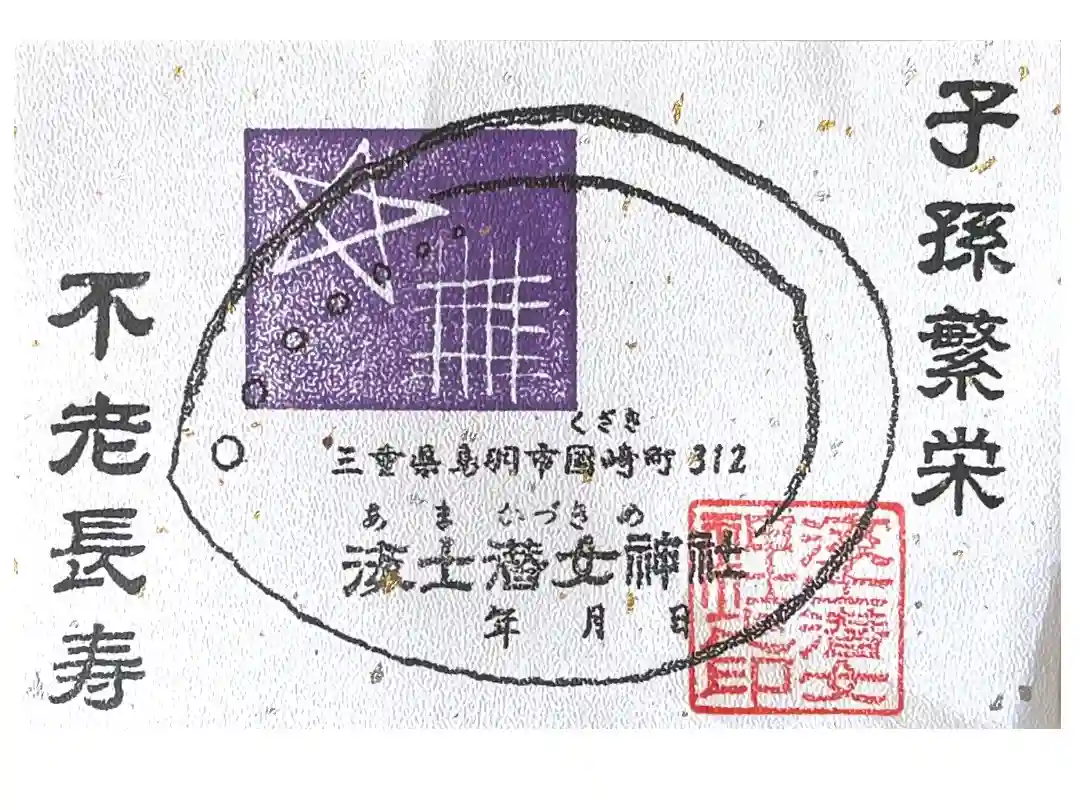 子孫繁栄
くざき
三重県鳥羽市國崎町312
あま かづき め
海士潜女神社
年 月 日
海士潜女
神社之印
不老長寿